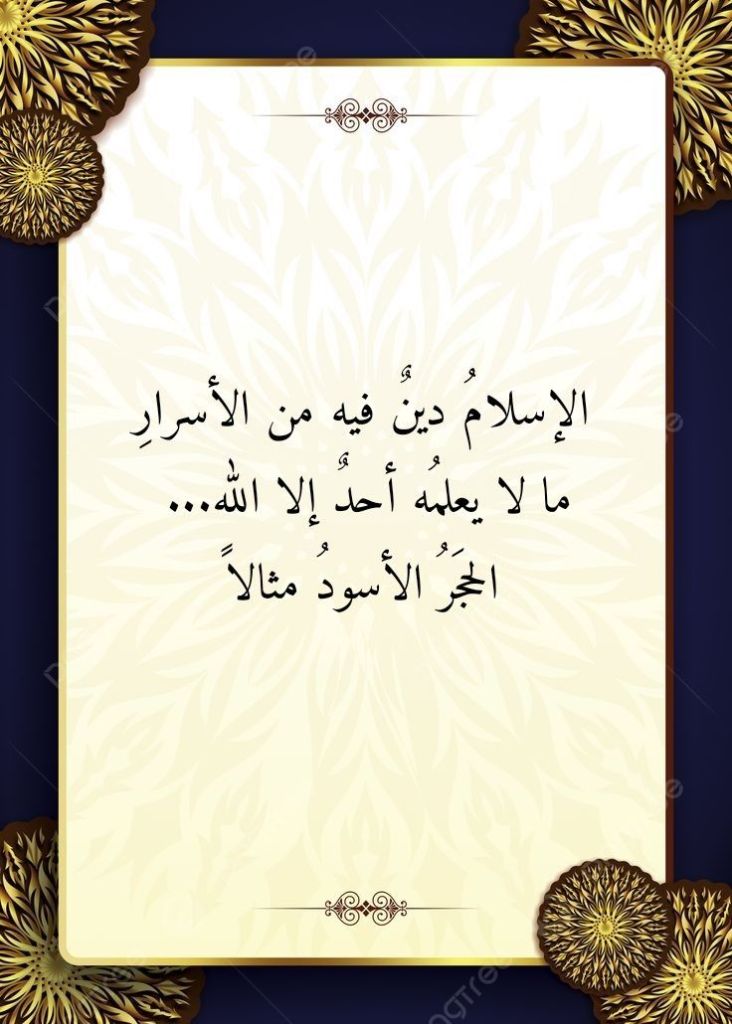 الإسلامُ دينٌ فيه من الأسرارِ
ما لا يعلمُه أحدٌ إلا الله...
الحجَرُ الأسودُ مثالاً